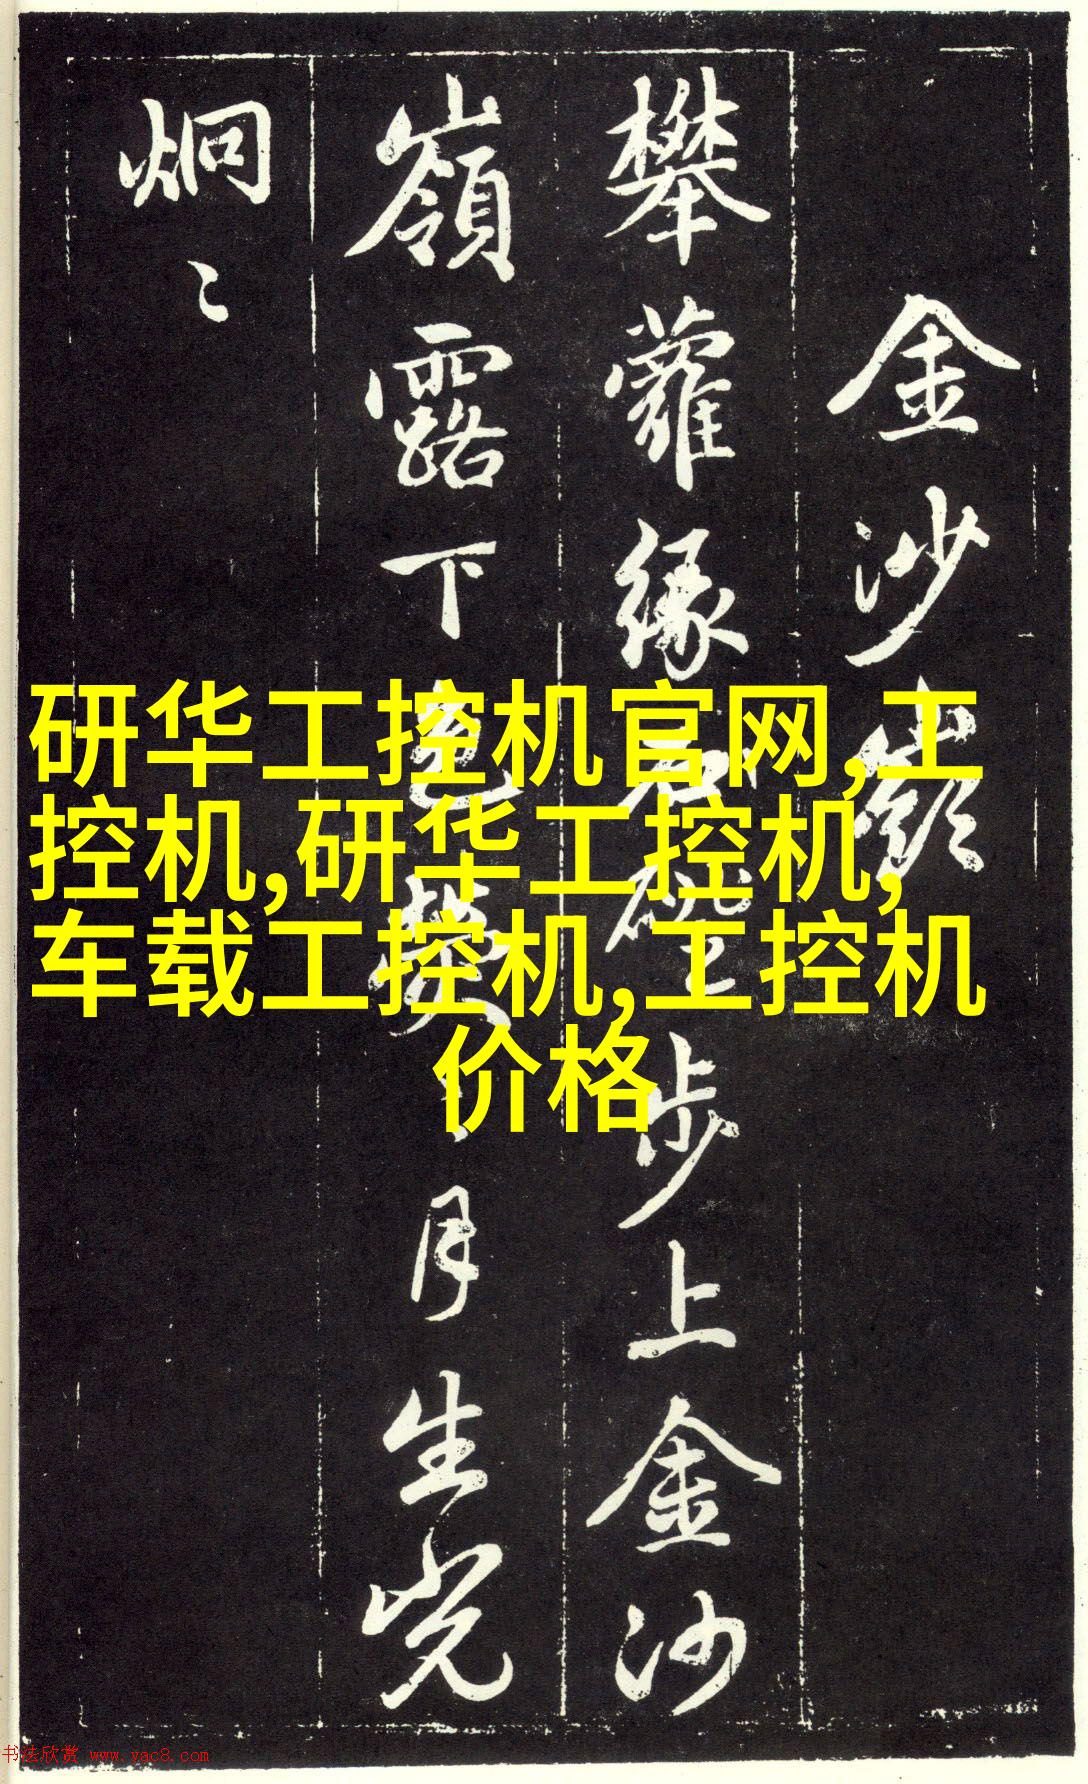 金沙嶺
攀蘿緣石磴步上金沙
嶺露下色熒〻月生光
炯〻
研华工控机官网,工
控机,研华工控机,
车载工控机,工控机
价格
书法欣赏 www.yac8.com